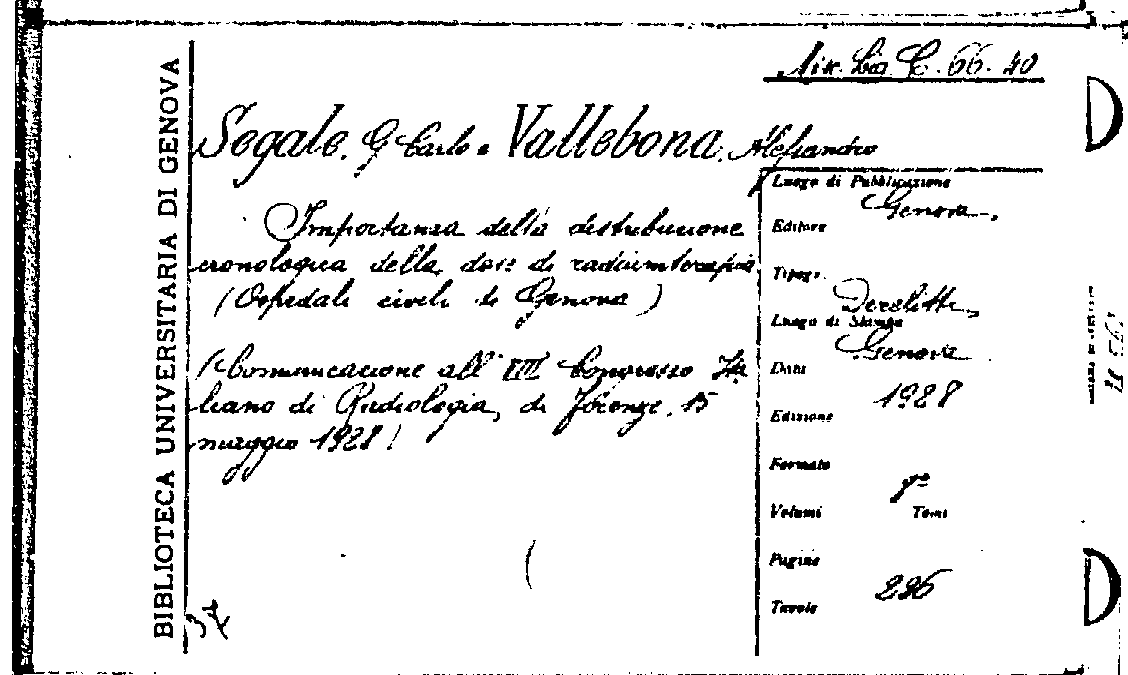 BIBLIOTECA UNIVERSITARIA DI GENOVA
Mis. C. 66. 40
Segale, G. Carlo e Vallebona, Alessandro
Importanza della distribuzione
cronologica della dose di radiumterapia
(Ospedali civili di Genova)
(Comunicazione all' VIII Congresso Ita
liano di Radiologia, di Firenze, 15
maggio 1928)
Luogo di Pubblicazione
Genova.
Editore
Tipogr.
Derelitti,
Luogo di Stampa
Genova
Data
1928
Edizione
Formato
8°
Volumi Tomi
Pagine
226
Tavole